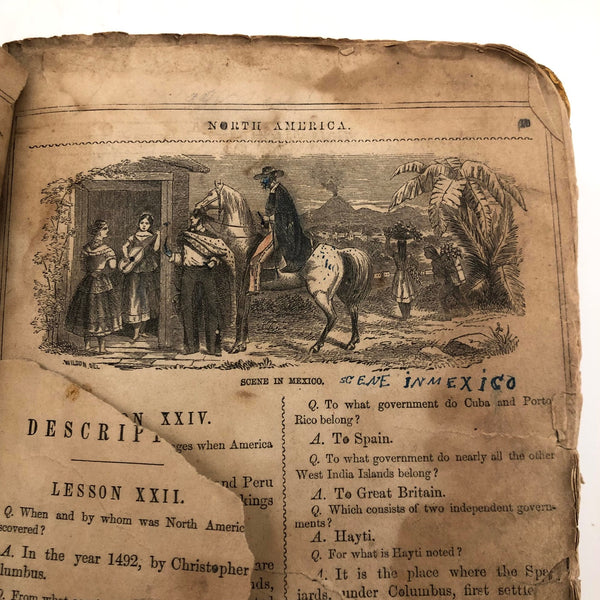 NORTH AMERICA.
WILSON DEL
SCENE IN MEXICO.
SCENE IN MEXICO
N XXIV.
DESCRIPT
ges when America
nd Peru
kings
LESSON XXII.
Q. When and by whom was North Americ
scovered?
A. In the year 1492, by Christopher
lumbus.
are
nds,
Q. From what
Q. To what government do Cuba and Porto
Rico belong?
A. To Spain.
Q. To what government do nearly all the other
West India Islands belong?
A. To Great Britain.
Q. Which consists of two independent govern-
ments?
A. Hayti.
Q. For what is Hayti noted?
A. It is the place where the Span-
iards, under Columbus, first settle